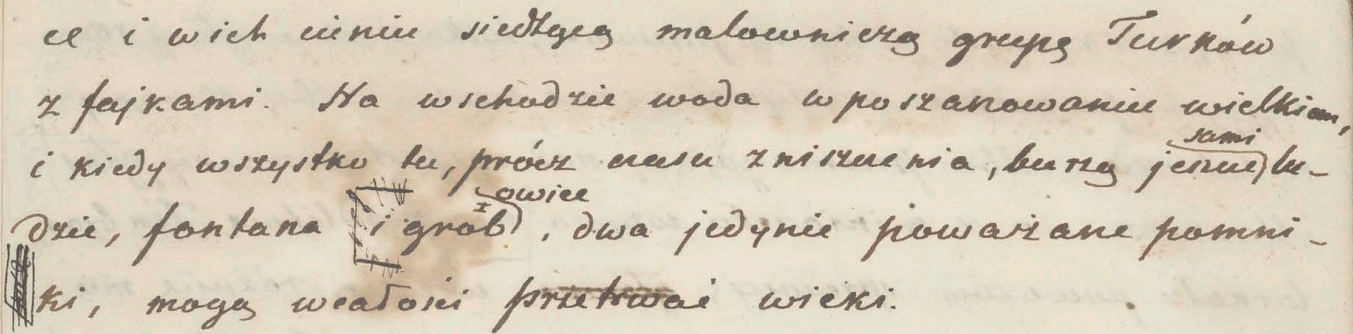 ce i w ich cieniu siedzącą malowniczą grupę Turków
z fajkami. Na wschodzie woda w poszanowaniu wielkiem,
i kiedy wszystko tu, prócz czasu zniszczenia, burzą jeszcze sami lu-
dzie, fontana i grobowiec, dwa jedynie poważane pomni-
ki, mogą wcałości przetrwać wieki.